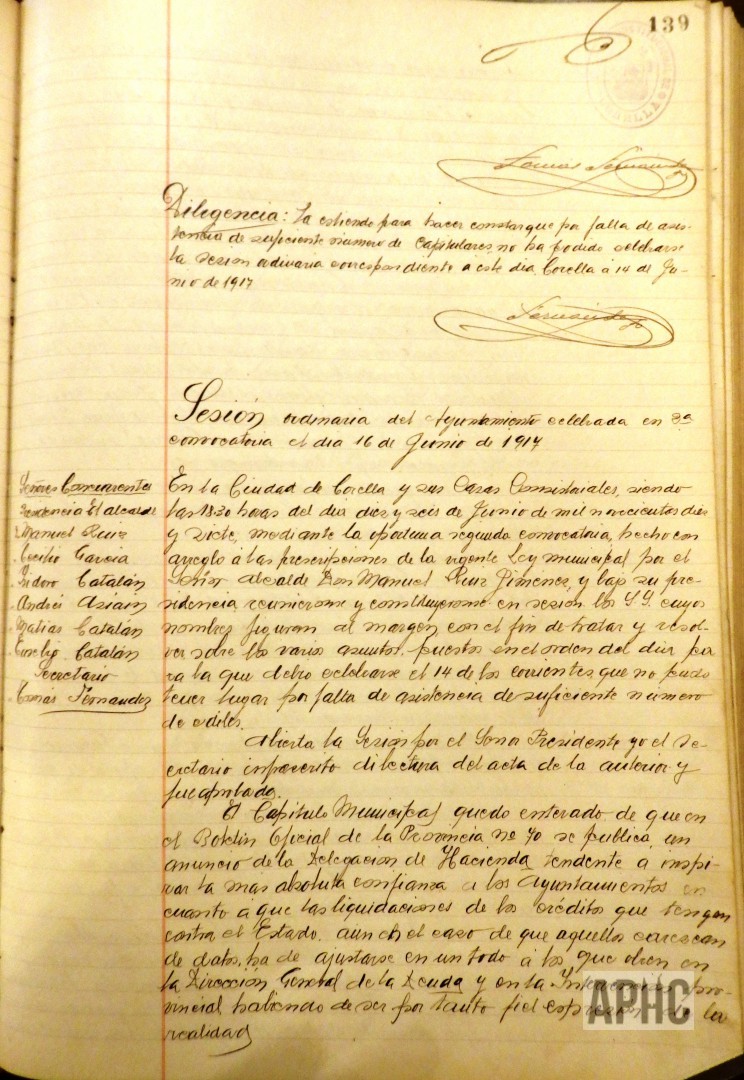 139
Tomás Fernández
Diligencia: La extiendo para hacer constar que por falta de asis-
tencia de suficiente número de Capitulares, no ha podido celebrarse
la sesion ordinaria correspondiente a este dia. Corella á 14 de Ju-
nio de 1917
Fernández
Sesión ordinaria del Ayuntamiento celebrada en 2ª
convocatoria el dia 16 de Junio de 1917
Señores Concurrentes
Presidencia El alcalde
Manuel Ruiz
Cecilio Garcia
Isidoro Catalán
Andrés Ariain
Matias Catalán
Catalán
Secretario
Tomás Fernandez
En la Ciudad de Corella y sus Casas Consistoriales, siendo
las horas del dia diez y seis de Junio de mil novecientos diez
y siete, mediante la oportuna segunda convocatoria, hecho con
arreglo á las prescripciones de la vigente Ley municipal por el
Señor Alcalde Don Manuel Ruiz Jimenez, y bajo su pre-
sidencia reunieronse y constituyeronse en sesion los S.S. cuyos
nombres figuran al margen con el fin de tratar y resol-
ver sobre los varios asuntos, puestos en el orden del dia pa-
ra la que debio celebrarse el 14 de los corrientes, que no pudo
tener lugar por falta de asistencia de suficiente número
de ediles.
Abierta la Sesion por el Señor Presidente yo el Se-
cretario infrascrito di lectura del acta de la anterior y
fue aprobada.
El Capitulo Municipal quedo enterado de que en
el Boletin Oficial de la Provincia nº 70 se publica un
anuncio de la Delegacion de Hacienda tendente a inspi-
rar la mas absoluta confianza a los Ayuntamientos en
cuanto á que las liquidaciones de los créditos que tengan
contra el Estado, aun en el caso de que aquellos carezcan
de datos, ha de ajustarse en un todo á los que obren en
la Dirección General de la Deuda y en la pro-
vincial habiendo de ser por tanto fiel expresion de la
realidad
APHC